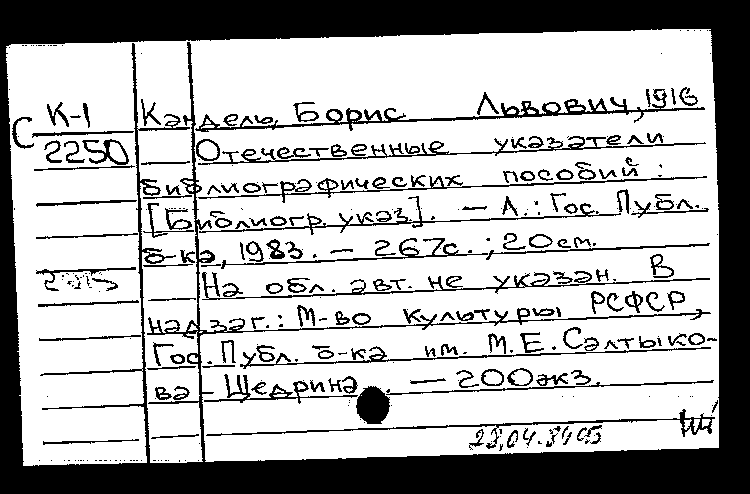 К-1 Кандель, Борис Львович, 1916
С
2250 Отечественные указатели
библиографических пособий :
[Библиогр. указ]. — Л. : Гос. Публ.
б-ка, 1983. — 267с. ; 20 ст.
На обл. авт. не указан. В
надзаг.: М-во культуры РСФСР,
Гос. Публ. б-ка им. М.Е. Салтыко-
ва - Щедрина. — 200экз.